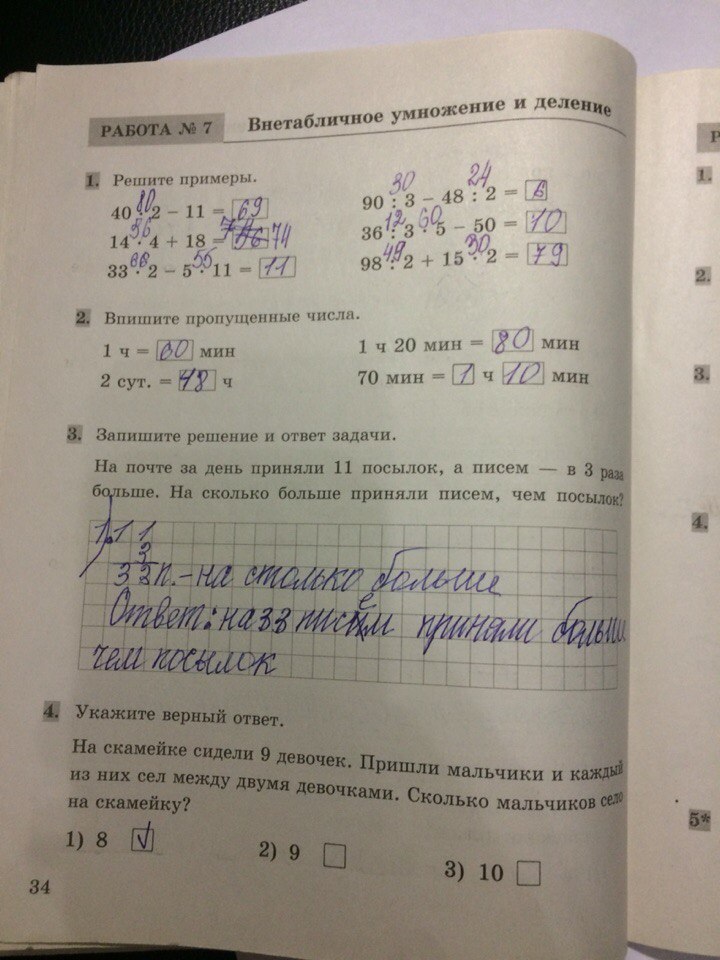 РАБОТА № 7 Внетабличное умножение и деление
1. Решите примеры.
80
40 · 2 − 11 = 69
56
14 · 4 + 18 = 74
66 55
33 · 2 − 5 · 11 = 11
30 24
90 : 3 − 48 : 2 = 6
12 60
36 : 3 · 5 − 50 = 10
49 30
98 : 2 + 15 · 2 = 79
2. Впишите пропущенные числа.
1 ч = 60 мин
2 сут. = 48 ч
1 ч 20 мин = 80 мин
70 мин = 1 ч 10 мин
3. Запишите решение и ответ задачи.
На почте за день приняли 11 посылок, а писем — в 3 раза
больше. На сколько больше приняли писем, чем посылок?
1) 1 1
3
п. – на столько больше
Ответ: на 33 писем приняли больше
чем посылок
4. Укажите верный ответ.
На скамейке сидели 9 девочек. Пришли мальчики и каждый
из них сел между двумя девочками. Сколько мальчиков село
на скамейку?
1) 8 √ 2) 9 3) 10
34
1.
2.
3.
4.
5*